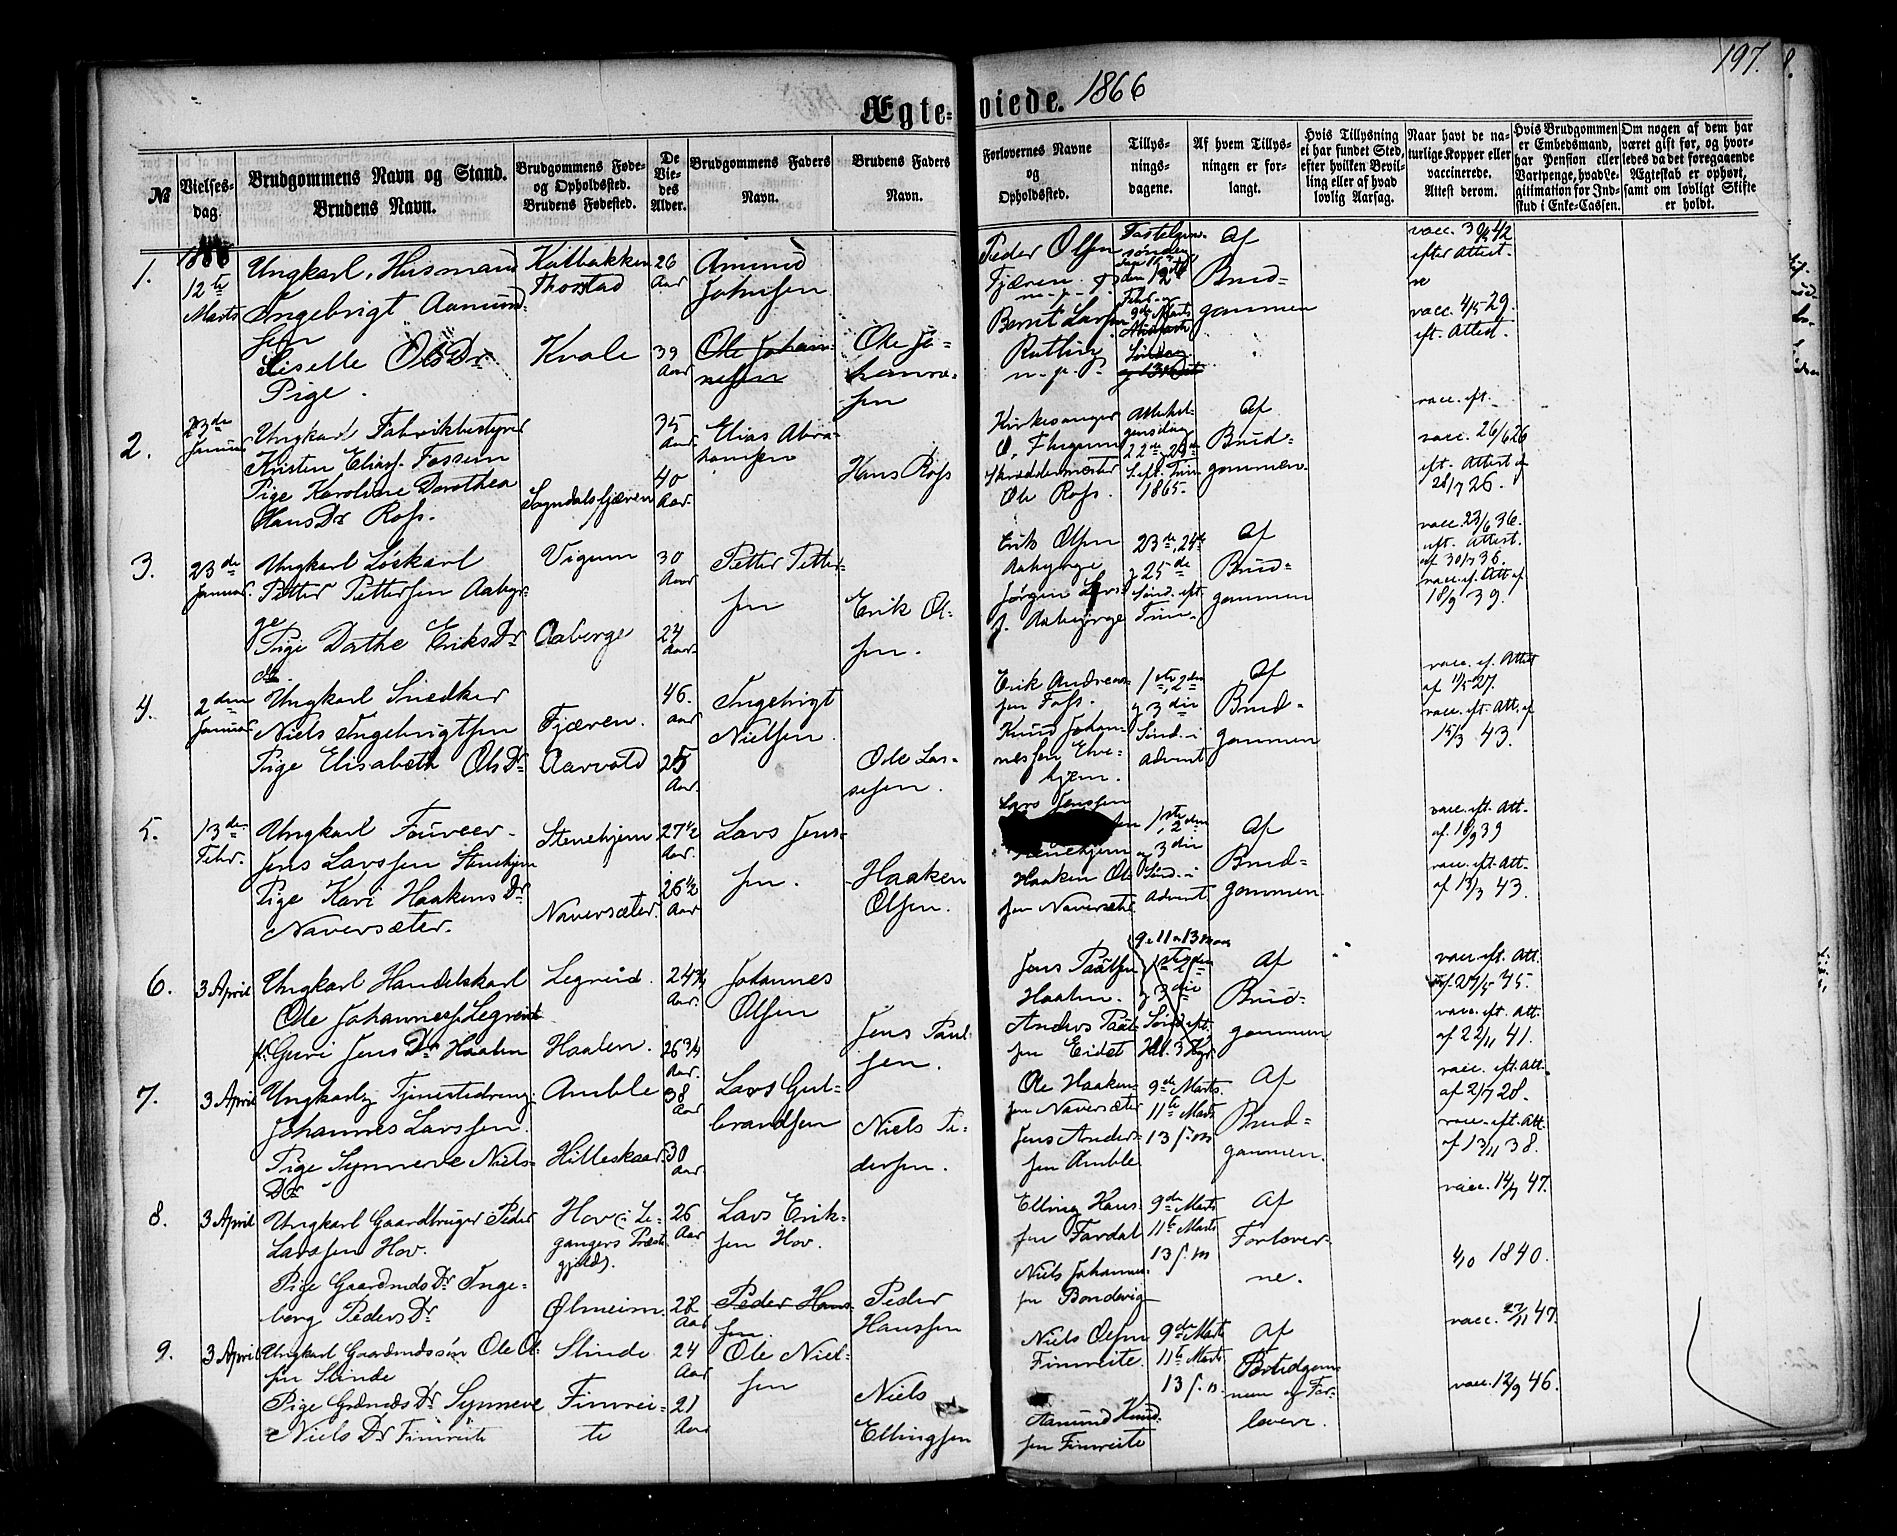 197.
8.
Ægteviede. 1866
№
Vielses-
dag.
Brudgommens Navn og Stand.
Brudens Navn.
Brudgommens Føde-
og Opholdssted.
Brudens Fødested.
De
Vie-
des
Alder.
Brudgommens Faders
Navn.
Brudens Faders
Navn.
Forlovernes Navne
og
Opholdssted.
Tillys-
nings-
dagene.
Af hvem Tillys-
ningen er for-
langt.
Hvis Tillysning
ei har fundet Sted,
efter hvilken Bevil-
ling eller af hvad
lovlig Aarsag.
Naar havt de na-
turlige Kopper eller
vaccinerede.
Attest derom.
Hvis Brudgommen
er Embedsmand,
har Pension eller
Vartpenge, hvad Le-
gitimation for Ind-
skud i Enke-Cassen.
Om nogen af dem har
været gift før, og hvor-
ledes da det foregaaende
Ægteskab er ophørt,
samt om lovligt Skifte
er holdt.
1.
12te
Marts
Ungkarl, Husmand
Ingebrigt Aamund-
sen
Giselle OlsDr
Pige.
Kalbakken
Thorstad
Kvale
26
Aar
39
Aar
Amund
Johnsen
Ole Johan-
nesen
Ole Jo-
hanne-
sen
Peder Olsen
Fjæren
Bernt Larsen
Rutlin
n. p. P.
Fastelavn-
Af
Brud-
gommen
efter Attest.
vacc. 4/5 29.
eft. Attest.
2.
23de
Januar
Ungkarl Fabrikbestyrer
Kristen Eliass. Fossum
Pige Karoline Dorothea
HansDr Ross.
Sogndalsfjæren
35
Aar
40
Aar.
Elias Abra-
hamsen
Hans Ross
Kirkesanger
Skræddermester
Ole Ross.
Allehel-
gensdag
22de, 23de
S. eft. Trin.
1865.
Af
Brud-
gommen.
vacc. eft.
vacc. 26/6 26
eft. Attest af
28/7 26.
3.
23de
Januar.
Ungkarl Løskarl
Petter Pettersen Aaber-
ge
Pige Dorthe EriksDr
do.
Vigum
Aaberge
30
Aar
24
Aar.
Petter Petter-
sen
Erik Ol-
sen.
Erik Olsen
Aabyrge
Jørgen Lars-
s. Aabyrge
23de, 24de
g 25de
Sønd. eft.
Trin.
Af
Brud-
gommen
vacc. 23/6 36.
eft. Attest.
af 30/7 36.
vacc. ef. Att af
18/9 39.
4.
2den
Januar
Ungkarl Snedker
Niels Ingebrigtsen
Pige Elisabeth OlsDr
Fjæren.
Aarvold
46.
Aar
25
Aar.
Ingebrigt
Nielsen
Ole Las-
sesen.
Erik Andreas-
sen Foss.
Knud Johan-
nessen Elve-
hjem.
1ste, 2den
g 3die
Sønd. i
Advent
Af
Brud-
gommen
vacc. ef. Attest
af 11/5 27.
vacc. eft. Att. af
15/3 43.
5.
13de
Febr.
Ungkarl Foureer
Jens Larssen Stenehjem
Pige Kari HaakensDr
Naversæter.
Stenehjem
Naversæter.
27 1/2
Aar.
26 1/2
Aar
Lars Jens-
sen.
Haaken
Olsen.
Lars Jenssen
Stenehjem
Haaken Ol-
sen Naversæter
1ste, 2den
g 3die
Sønd. i
Advent
Af
Brud-
gommen
vacc. eft. Att.
af 18/9 39
vacc. eft. Att.
af 13/3 43.
6.
3 April
Ungkarl Handelskarl
Ole Johanness. Legreid
P. Guri JensDr Haalen
Legreid.
Haalen.
24 3/4
Aar.
26 3/4
Aar.
Johannes
Olsen
Jens Paul-
sen.
Jens Paalsen
Haalen.
Anders Paal-
sen Eidet
9, 11 og 13 Marts
Af
Brud-
gommen
vacc. eft. Att.
af 24/5 45.
vacc. eft. Att.
af 22/11 41.
7.
3 April
Ungkarl Tjenestedreng
Johannes Larssen.
Pige Synneve Niels-
Dr
Amble
Hilleskaar.
38
Aar
30
Aar
Lars Gul-
brandsen
Niels Pe-
dersen.
Ole Haaken-
sen Naversæter
Jens Anders-
sen Amble
9de Marts.
11te Marts
13 s. m
Af
Brud-
gommen.
vacc. eft. Att.
af 2/7 28.
vacc. eft. Att.
af 13/11 38.
8.
3 April
Ungkarl Gaardbruger Peder
Larssen Hov.
Pige GaardmdsDr Inge-
berg PedersDr
Hov i Le-
gangers Præste-
gjeld.
Ølmeim.
26
Aar
28
Aar
Lars Erik-
sen Hov.
Peder Hans-
sen.
Peder
Hanssen
Elling Hans-
sen Fardal
Niels Johannes-
sen Bondevig
9de Marts
11te Marts
13 s. m
Af
Forlover-
ne.
vacc. 14/7 47.
1840.
9.
3 April
Ungkarl Gaardmdssøn Ole Ol-
sen Slinde
Pige GrdmdsDr Synneve
NielsDr Fimreite
Slinde
Fimrei-
te
24
Aar
21
Aar
Ole Niel-
sen
Niels
Ellingsen
Niels Olsen
Fimreite.
Aamund Knud-
sen Fimreite
9de Marts
11te Marts
13 s. m.
Af
Brudgom-
men og For-
lovere.
vacc. 27/11 47.
vacc. 12/9 46.